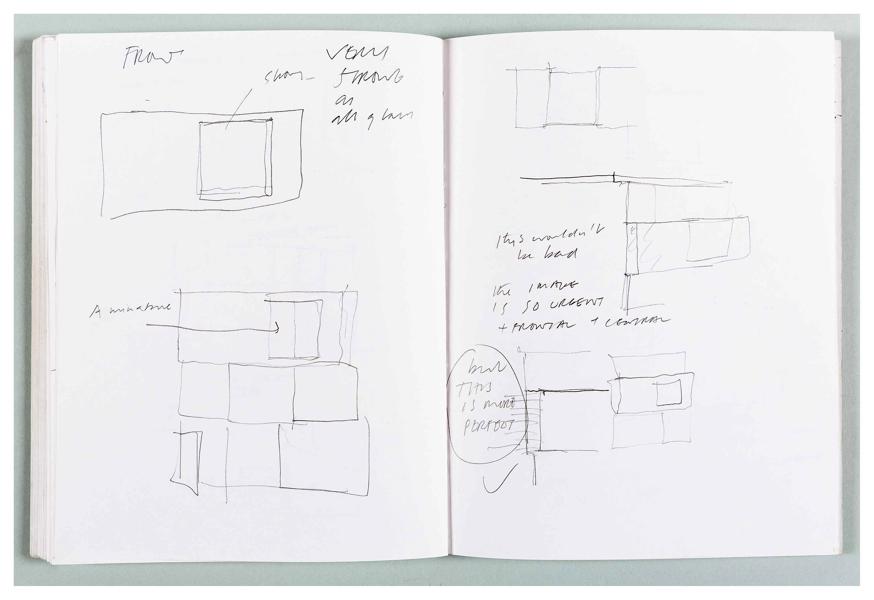 FRONT
VERY
STRONG
as
all glass
A miniature
this wouldn't
be bad
the IMAGE
IS SO URGENT
+ FRONTAL + CENTRAL
but
THIS
IS MORE
PERFECT